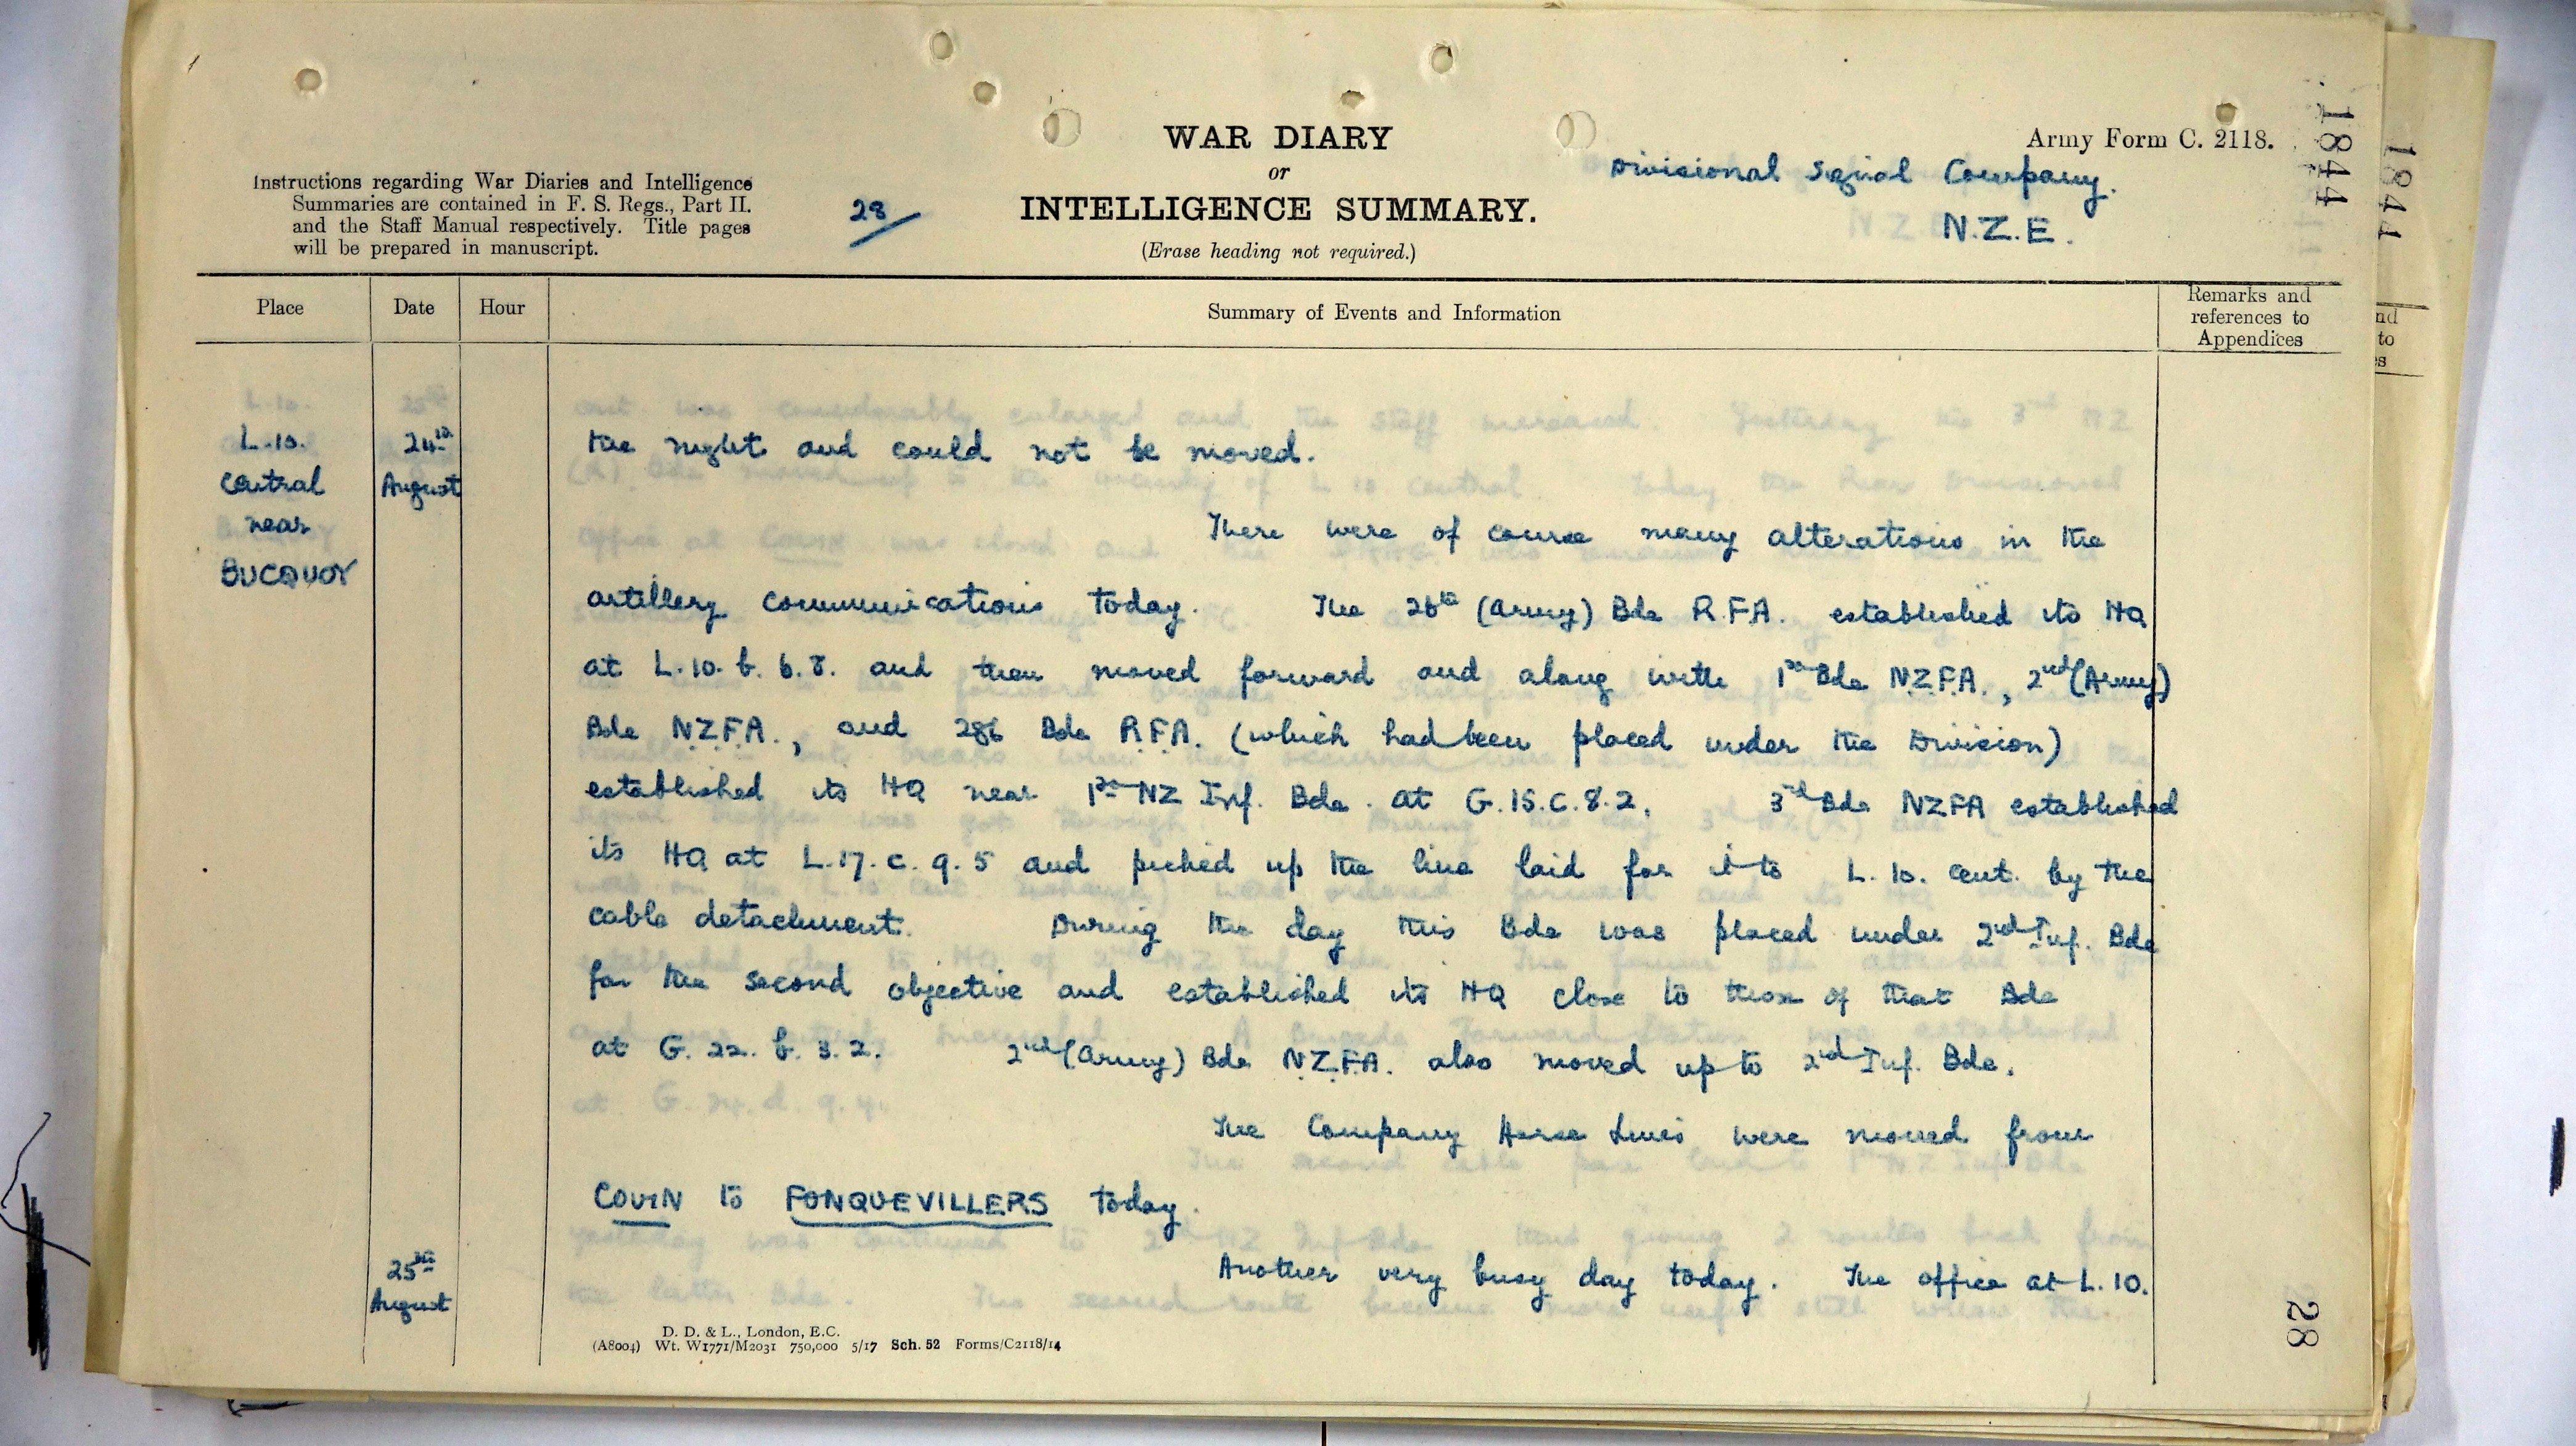 WAR DIARY
or
INTELLIGENCE SUMMARY.
(Erase heading not required.)
Army Form C. 2118.
Divisional Signal Company.
N.Z.E.
1844
1844
Instructions regarding War Diaries and Intelligence
Summaries are contained in F. S. Regs., Part II.
and the Staff Manual respectively. Title pages
will be prepared in manuscript.
28
Place
Date
Hour
Summary of Events and Information
Remarks and
references to
Appendices
L.10.
central
near
BUCQUOY
24th
August
the night and could not be moved.
There were of course many alterations in the
artillery communications today. The 26th (Army) Bde R.F.A. established its HQ
at L.10.b.6.8. and then moved forward and along with 1st Bde N.Z.F.A., 2nd (Army)
Bde N.Z.F.A., and 286 Bde R.F.A. (which had been placed under the Division)
established its HQ near 1st NZ Inf. Bde. at G.15.c.8.2. 3rd Bde NZFA established
its HQ at L.17.c.9.5 and picked up the line laid for it to L.10. cent. by the
cable detachment. During the day this Bde was placed under 2nd Inf. Bde
for the second objective and established its HQ close to those of that Bde
at G.22.b.3.2. 2nd (Army) Bde N.Z.F.A. also moved up to 2nd Inf. Bde.
The Company Horse Lines were moved from
COUIN to FONQUEVILLERS today.
25th
August
Another very busy day today. The office at L.10.
D. D. & L., London, E.C.
(A8004) Wt. W1771/M2031 750,000 5/17 Sch. 52 Forms/C2118/14
28